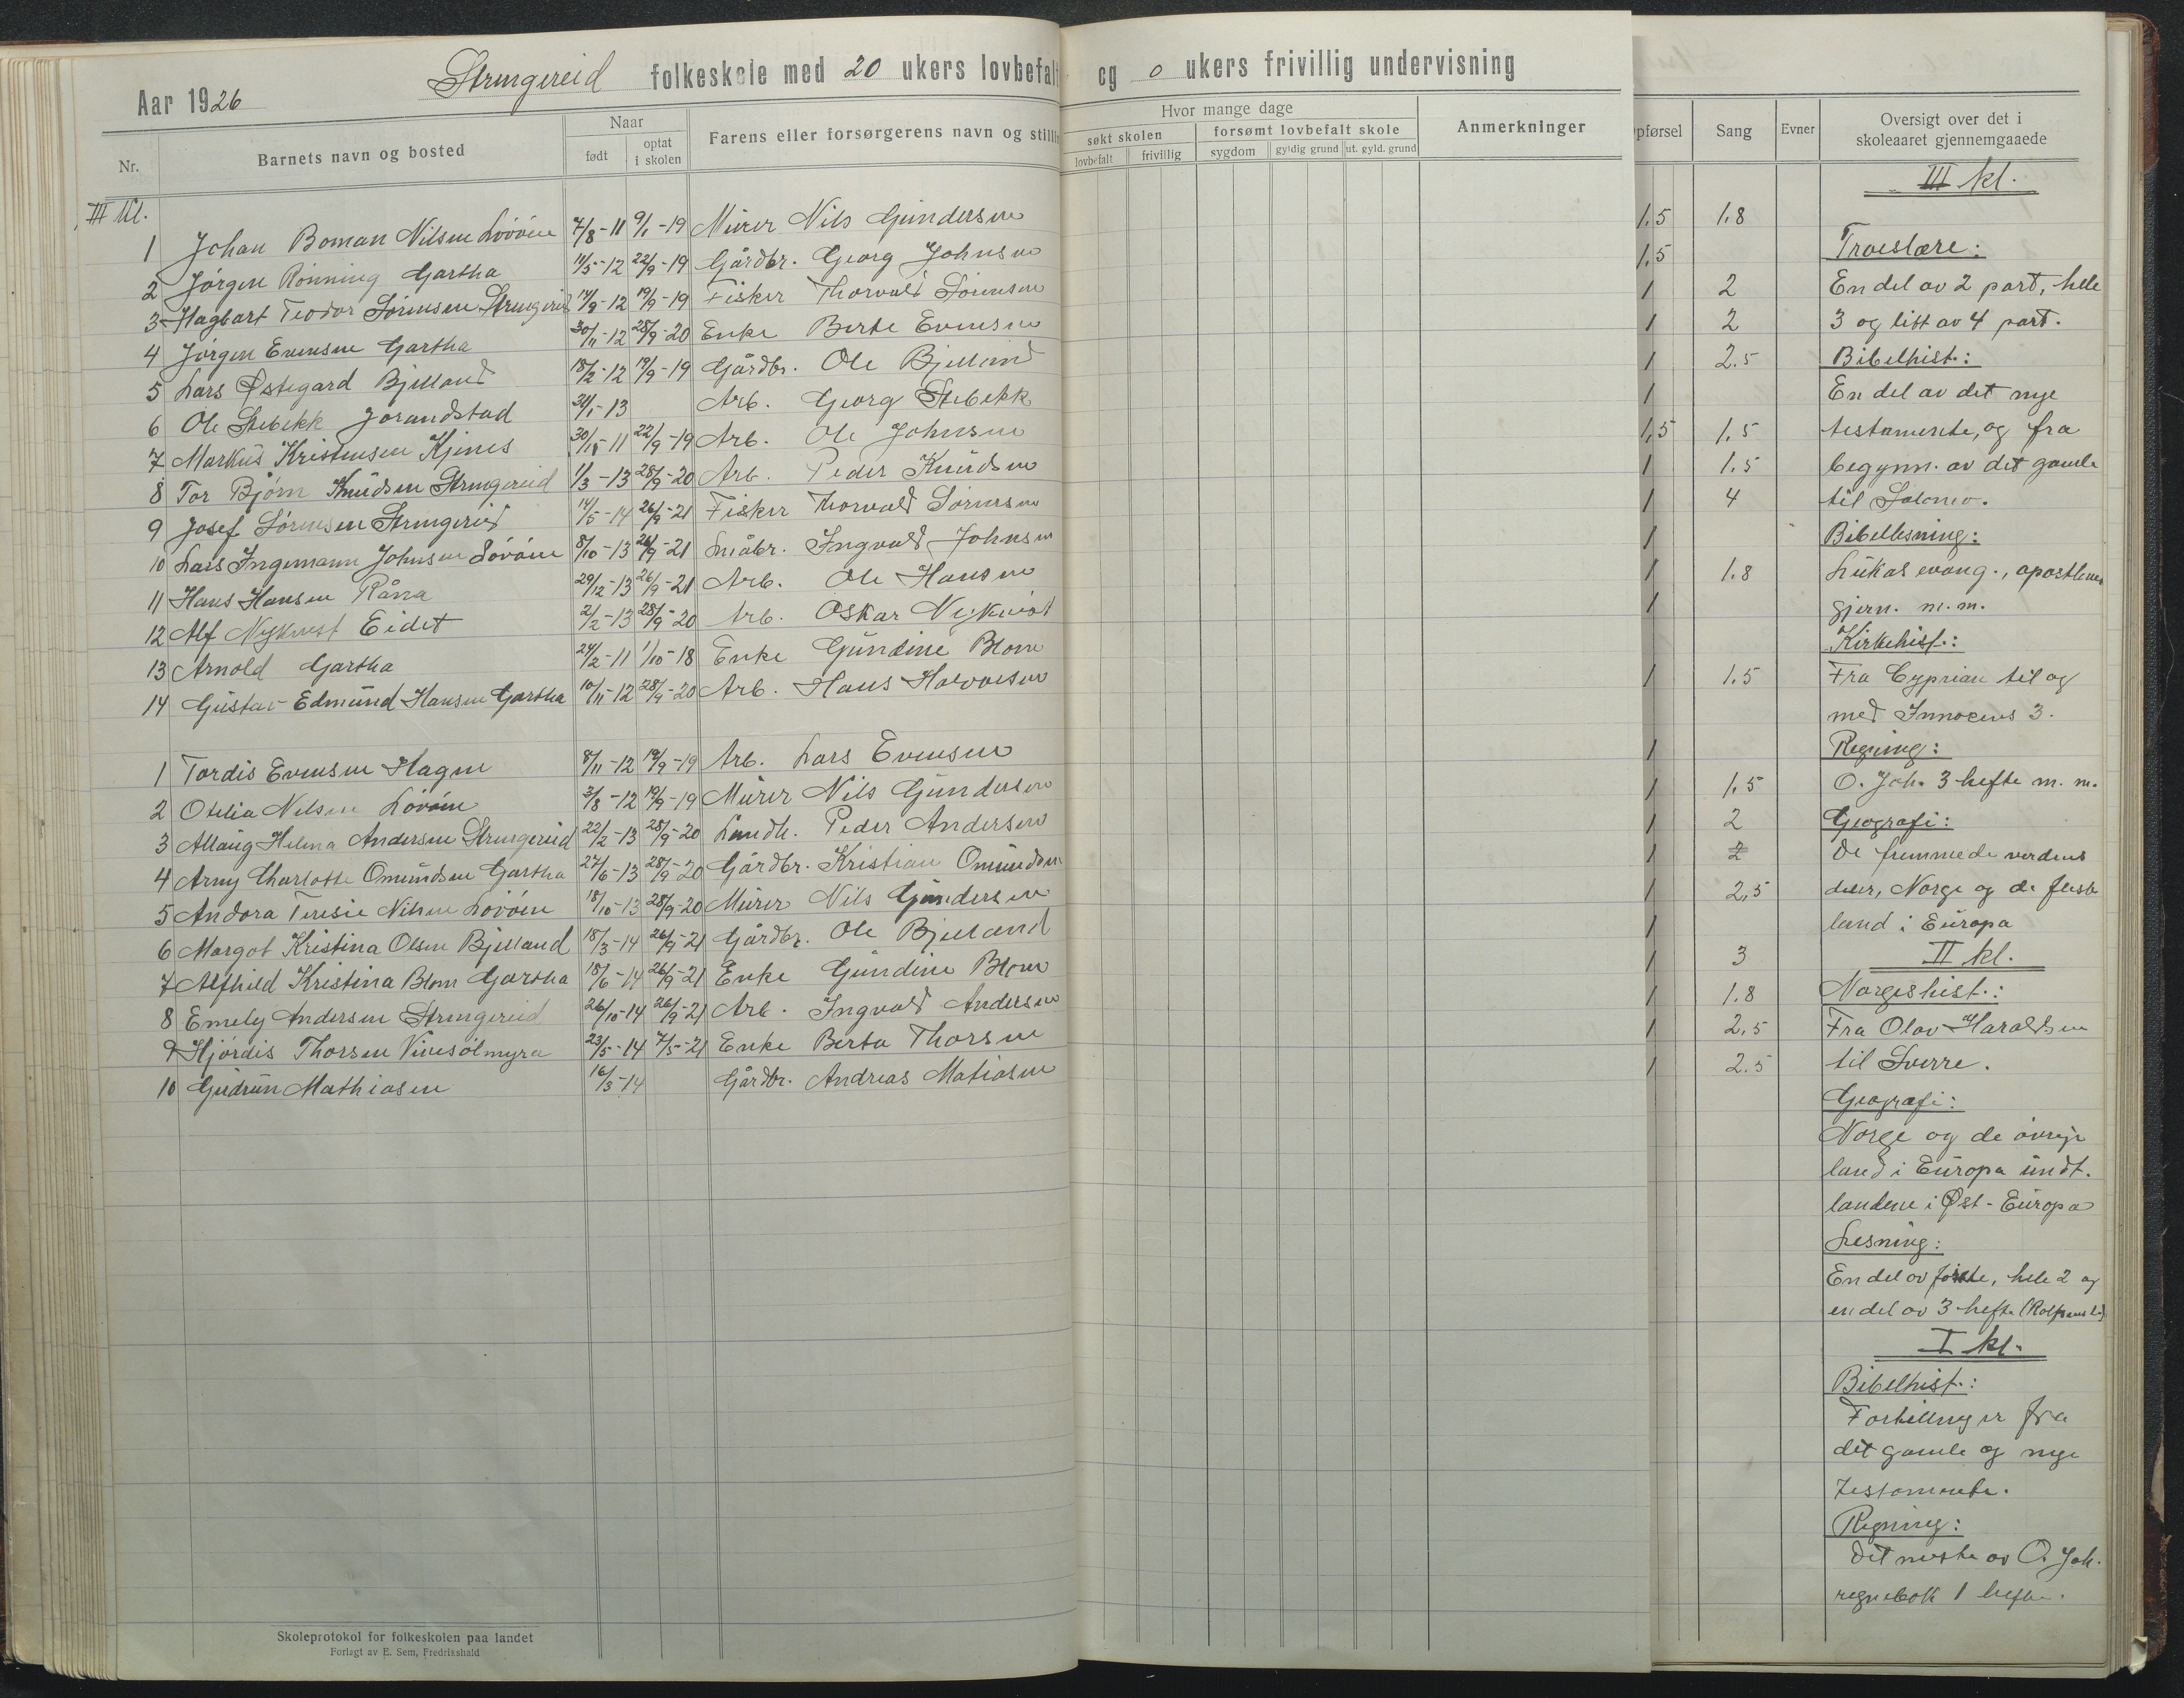 Aar 1926 Strengereid folkeskole med 20 ukers lovbefalt og 0 ukers frivillig undervisning
Nr. Barnets navn og bosted Naar født optat i skolen Farens eller forsørgerens navn og stilling
III kl.
1 Johan Boman Nilsen Lövöen 4/8-11 9/1-19 Mürer Nils Gündersen
2 Jörgen Rönning Gartha 14/5-12 22/9-19 Gårdbr. Georg Johnsen
3 Hagbart Teodor Sörensen Strengereid 14/8-12 19/9-19 Fisker Thorvald Sörensen
4 Jörgen Evensen Gartha 30/11-12 28/9-20 Enke Berte Evensen
5 Lars Østegard Bjelland 18/2-12 19/9-19 Gårdbr. Ole Bjelland
6 Ole Stebekk Jorandstad 24/1-13 Arb. Georg Stebekk
7 Markus Kristensen Kjenes 30/11-11 22/9-19 Arb. Ole Johnsen
8 Tor Björn Knüdsen Strengereid 1/3-13 28/9-20 Arb. Peder Knüdsen
9 Josef Sörensen Strengereid 14/5-14 26/9-21 Fisker Thorvald Sörensen
10 Lars Ingemann Johnsen Lövöen 8/10-13 26/9-21 Småbr. Ingvald Johnsen
11 Hans Hansen Råna 29/12-13 26/9-21 Arb. Ole Hansen
12 Alf Nykvist Eidet 2/2-13 28/9-20 Arb. Oskar Nykvist
13 Arnold Gartha 24/2-11 1/10-18 Enke Gündine Blom
14 Güstav Edmünd Hansen Gartha 10/11-12 28/9-20 Arb. Hans Halvorsen
1 Tordis Evensen Hagen 8/11-12 19/9-19 Arb. Lars Evensen
2 Otelia Nilsen Lövöen 3/8-12 19/9-19 Mürer Nils Gündersen
3 Allaug Helena Andersen Strengereid 22/2-13 28/9-20 Landh. Peder Andersen
4 Arny Charlotte Omündsen Gartha 27/6-13 28/9-20 Gårdbr. Kristian Omündsen
5 Andora Teresie Nilsen Lövöen 18/10-13 28/9-20 Mürer Nils Gündersen
6 Margot Kristina Olsen Bjelland 18/3-14 26/9-21 Gårdbr. Ole Bjelland
7 Alfhild Kristina Blom Gartha 18/6-14 26/9-21 Enke Gündine Blom
8 Emely Andersen Strengereid 26/10-14 26/9-21 Arb. Ingvald Andersen
9 Hjördis Thorsen Vivesölmyra 23/5-14 7/5-21 Enke Berta Thorsen
10 Güdrün Mathiasen 16/3-14 Gårdbr. Andreas Matiasen
Skoleprotokol for folkeskolen paa landet
Forlagt av E. Sem, Fredrikshald
Hvor mange dage
søkt skolen forsømt lovbefalt skole Anmerkninger
lovbefalt frivillig sygdom gyldig grund ut. gyld. grund
pførsel Sang Evner Oversigt over det i
skoleaaret gjennemgaaede
III kl.
1,5 1.8
1.5 Troeslære:
1 2 En del av 2 part, hele
1 2 3 og litt av 4 part.
1 2.5 Bibelhist.:
1 En del av det nye
1,5 1.5 testamente, og fra
1 1.5 begynn. av det gamle
1 4 til Salomo.
1 Bibellesning:
1 1.8 Lükas evang., apostlenes
1 gjern. m.m.
Kirkehist.:
1 1.5 Fra Cyprian til og
med Innocens 3.
1 Regning:
1 1.5 O. Joh. 3 hefte m. m.
1 2 Geografi:
1 2 De fremmede verdens
1 2,5 deler, Norge og de fleste
1 land i Europa
1 3 II kl.
1 1.8 Norgeshist.:
1 2.5 Fra Olav Haraldsen
1 2.5 til Sverre.
Geografi:
Norge og de övrige
land i Europa undt.
landene i Øst-Europa
Lesning:
En del av förste, hele 2 og
en del av 3 hefte
I kl.
Bibelhist.:
Fortellinger fra
det gamle og nye
testamente.
Regning:
Det meste av O. Joh.
regnebok 1 hefte.